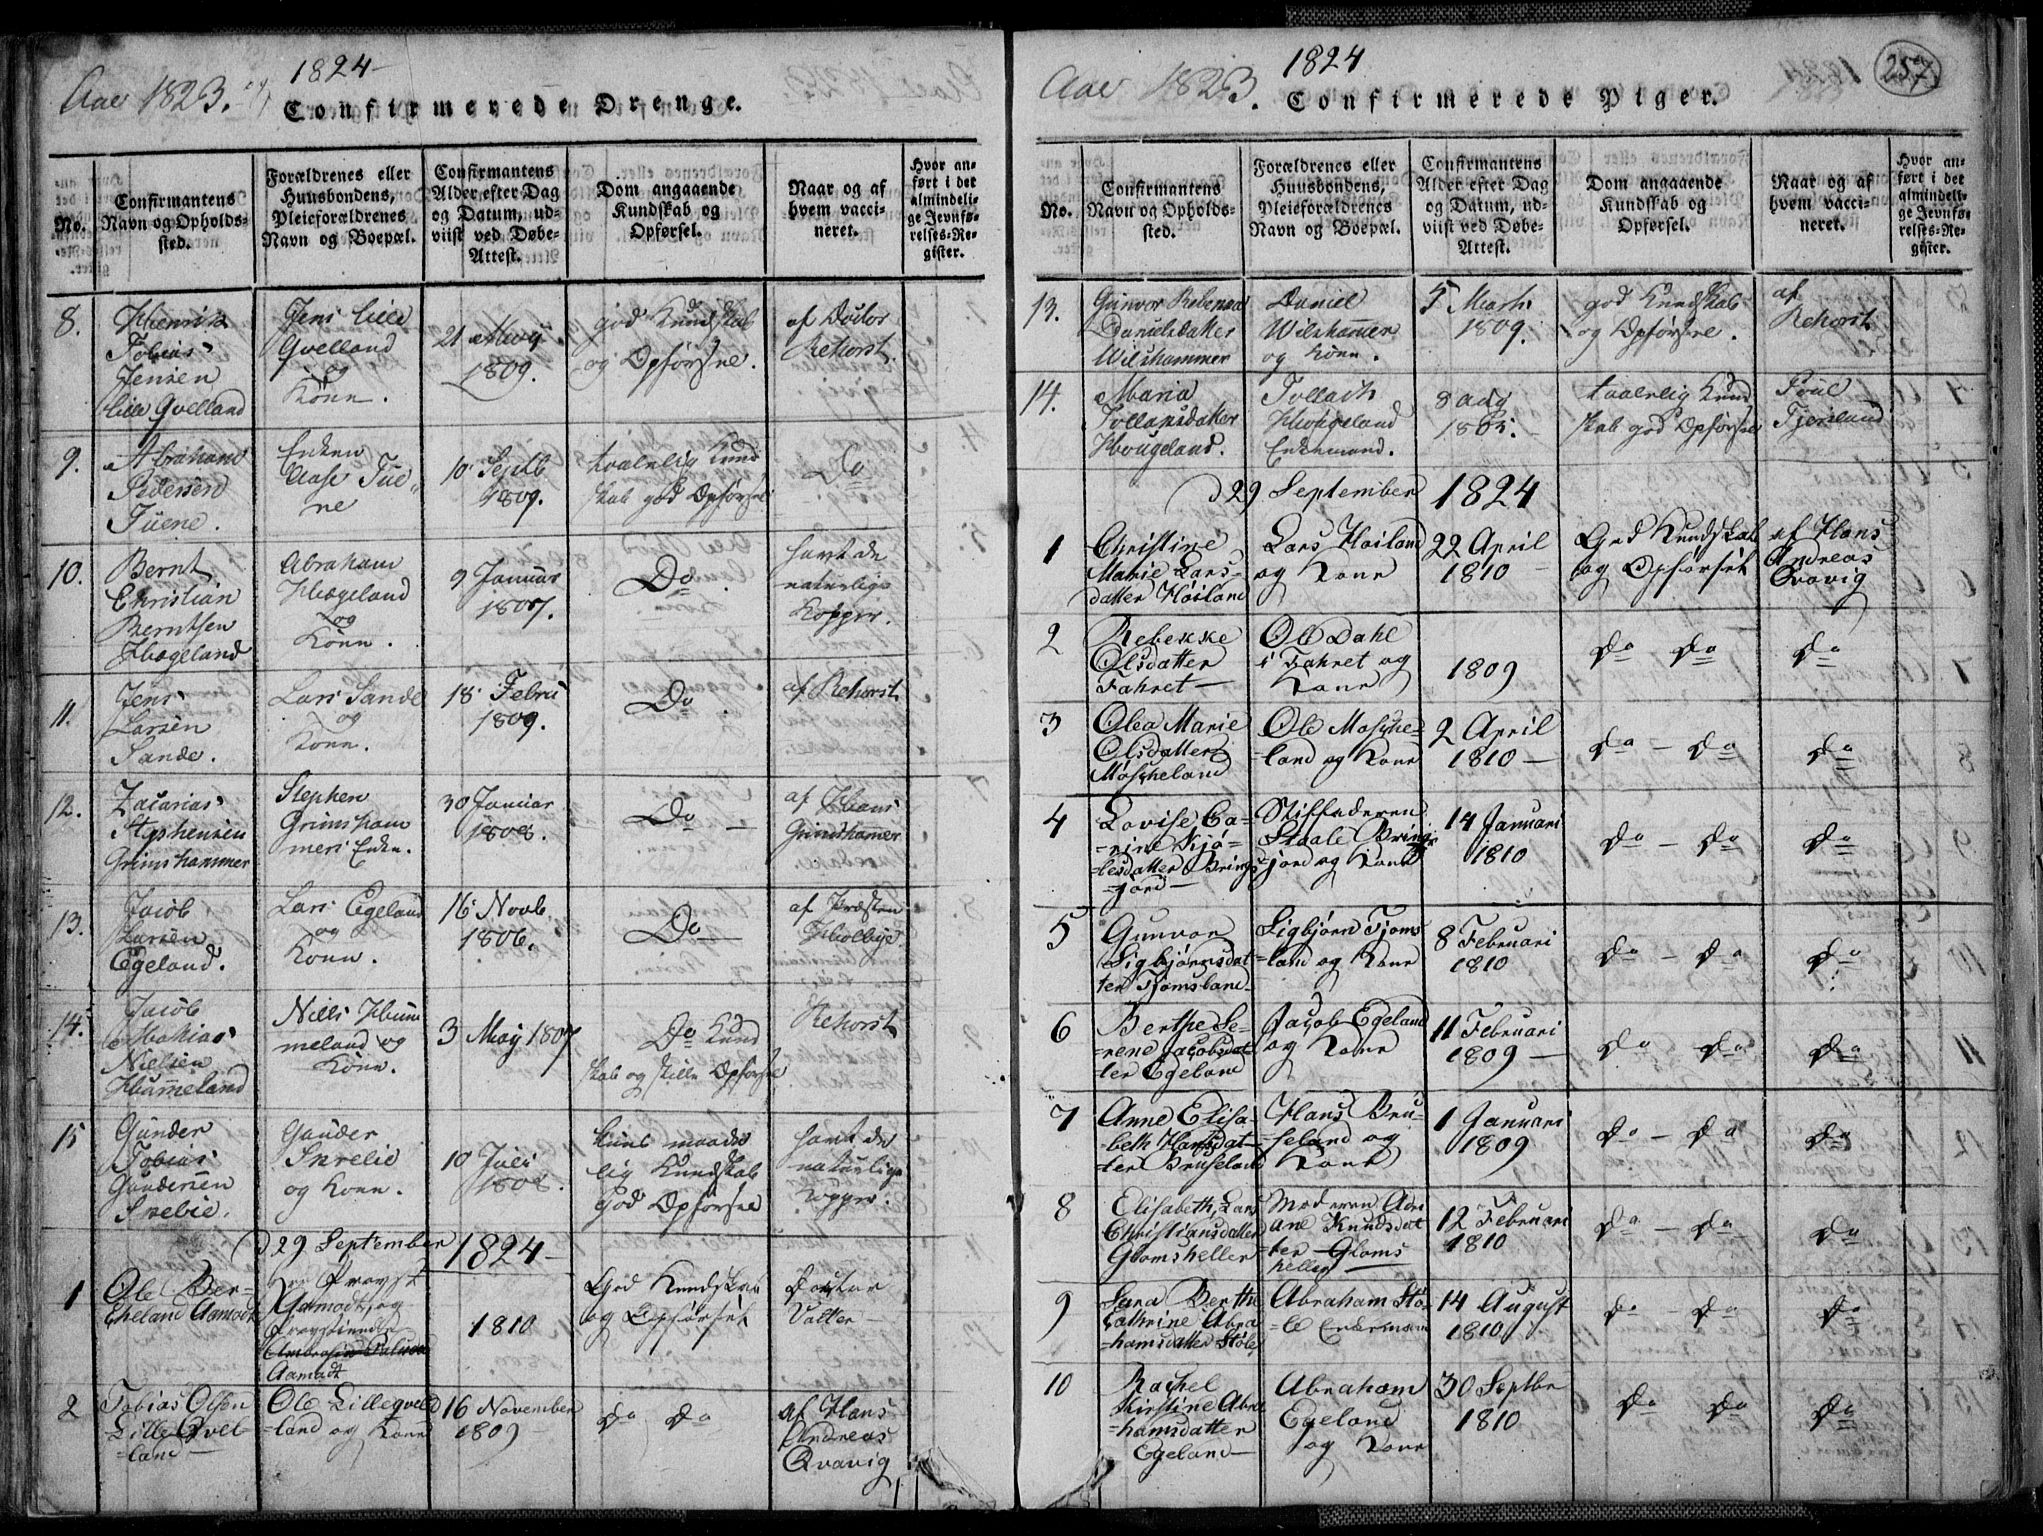 Aar 1823.
1824
Confirmerede Drenge.
No.
Confirmantens
Navn og Opholds-
sted.
Forældrenes eller
Huusbondens,
Pleieforældrenes
Navn og Boepæl.
Confirmantens
Alder efter Dag
og Datum, ud-
viist ved Døbe-
Attest.
Dom angaaende
Kundskab og
Opførsel.
Naar og af
hvem vacci-
neret.
Hvor an-
ført i det
almindeli-
ge Jevnfø-
relses-Re-
gister.
8.
Henrik
Tobias
Jensen
Lille Qvelland
Jens Lille
Qvelland
og
Kone.
21 May
1809.
god Kundskab
og Opførsel.
af Doctor
Rehorst.
9.
Abraham
Pedersen
Tuene.
Enken
Aase Tue-
ne
10 Septb
1809.
taalelig Kund
skab god Opførsel
Do
10.
Bernt
Christian
Berntsen
Hægeland
Abraham
Hægeland
og
Kone.
9 Januar
1807.
Do
havt de
naturlige
Kopper.
11.
Jens
Larsen
Sande.
Lars Sande
og
Kone.
18 Febru
1809.
Do
af Rehorst
12.
Zacarias
Stephensen
Grimshammer
Stephen
Grimsham
mers Enke.
30 Januar
1808.
Do
af Hans
Grimshamer
13.
Jacob
Larsen
Egeland.
Lars Egeland
og
Kone.
16 Novb.
1806.
Do
af Præsten
Holbye
14.
Jacob
Mathias
Nielsen
Hummeland
Niels Hum
meland og
Kone.
3 May 1807
Do Kund
skab og stille Opførsel
Rehorst
15
Gunder
Tobias
Gundersen
Snebie.
Gunder
og Kone.
10 Juli
1808.
lig Kundskab
God Opførsel
havt de
naturlige
Kopper.
d 29 September 1824
1
Ole Ber-
Eheland Aamodt
Hr Provst
Aamodt og
Provstinde
Aamodt
1810
God Kundskab
og Opførsel
Doctor
Vatter
2
Tobias Olsen
Lille Qvel-
-land
Ole Lilleqvel
-land og Kone
16 November
1809
Do Do
af Hans
Andreas
Qvavig
Aar 1823.
1824
257
Confirmerede Piger.
No.
Confirmantens
Navn og Opholds-
sted.
Forældrenes eller
Huusbondens,
Pleieforældrenes
Navn og Boepæl.
Confirmantens
Alder efter Dag
og Datum, ud-
viist ved Døbe-
Attest.
Dom angaaende
Kundskab og
Opførsel.
Naar og af
hvem vacci-
neret.
Hvor an-
ført i det
almindeli-
ge Jevnfø-
relses-Re-
gister.
13.
Gunvor Rebecca
Danielsdatter
Wilshammer
Daniel
Wilshammer
og Kone.
5 Marti
1809.
god Kundskab
og Opførsel.
af
Rehorst
14.
Maria
Tollagsdatter
Hougeland.
Tollach
Hougeland
Enkemand.
8 Aug
1805.
taalelig Kund
skab god Opførsel
Poul
Tjomland
d 29 September 1824
1
Christine
Marie Lars-
datter Hoiland
Lars Hoiland
og Kone
22 April
1810
God Kundskab
og Opførsel
af Hans
Andreas
Qvavig
2
Rebekke
Olsdatter
Fahret
Ole Dahl
i Fahret og
Kone
1809
Do Do
Do
3
Olea Marie
Olsdatter
Møscheland
Ole Møsche-
land og Kone
2 April
1810
Do - Do
Do
4
Lovise Ca-
-rine Kjø-
-lesdatter Brings
-jord
Stiffaderen
Staale Brings
jord og Kone
14 Januari
1810
Do - Do
Do
5
Gunvor
Sigbjørnsdat
ter Tjomsland
Sigbjørn Tjoms
-land og Kone
8 Februari
1810
Do - Do
Do
6
Berthe Se-
-rene Jacobsdat
-ter Egeland
Jacob Egeland
og Kone
11 Februari
1809
Do - Do
Do
7
Anne Elisa-
-beth Hansdat-
-ter Bruseland
Hans Bru-
-seland og
Kone
1 Januari
1809
Do - Do
Do
8
Elisabeth Lars
Christiansdatter
Glomsheller
Moderen Adri
ane Knudsdat
ter Gloms
heller
12 Februari
1810
Do - Do
Do
9
Sara Berthe
Cathrine Abra
hamsdatter Støle
Abraham Stø
-le Enkemam
14 August
1810
Do - Do
Do
10
Rachel
Kirstine Abra
-hamsdatter
Egeland
Abraham
Egeland
og Kone
30 Septbr
1810
Do Do
Do